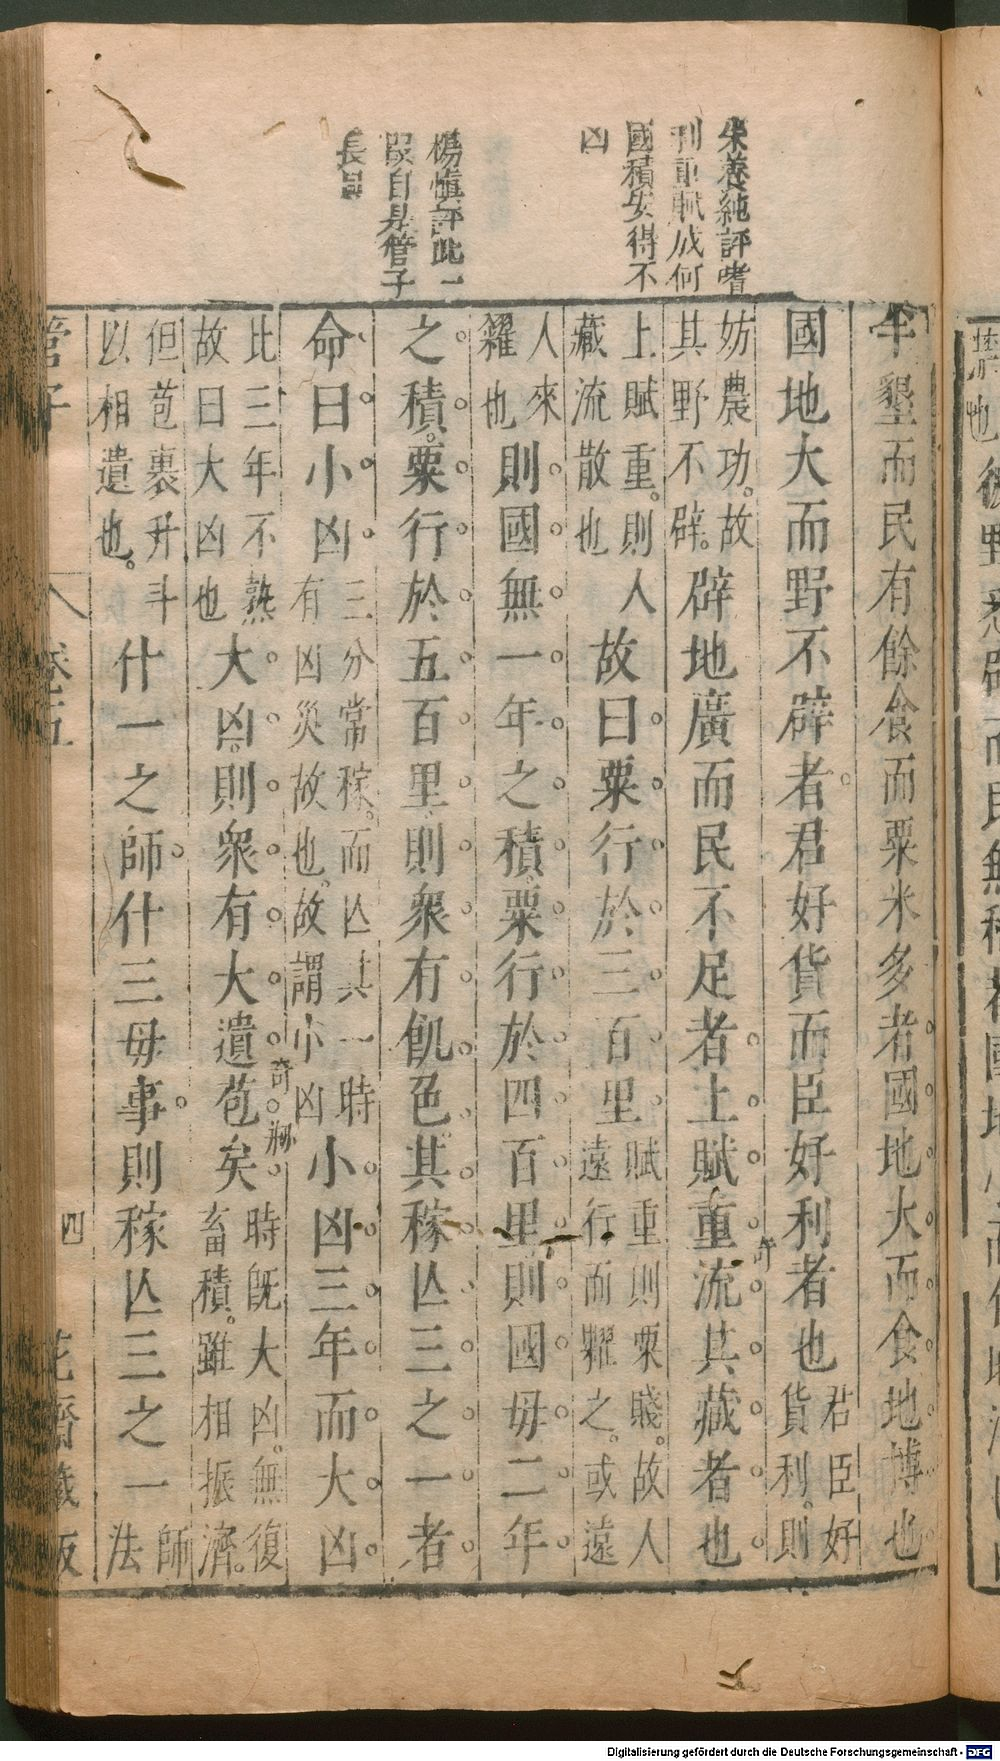 朱養純評嗜
利重賦成何
國積安得不
凶
楊慎評此一
段自是管子
長員
半墾而民有餘食而粟米多者國地大而食地博也
國地大而野不辟者君好貨而臣好利者也君臣好
貨利則
妨農功故
其野不辟辟地廣而民不足者上賦重流其藏者也
上賦重則人
藏流散也故曰粟行於三百里賦重則粟賤故人
遠行而糶之或遠
人來
糴也則國無一年之積粟行於四百里則國毋二年
之積粟行於五百里則衆有飢色其稼亾三之一者
命曰小凶三分常稼而亾其一時
有凶災故也故謂小凶小凶三年而大凶
比三年不熟
故曰大凶也大凶則衆有大遺苞矣時旣大凶無復
畜積雖相振濟
但苞裹升斗
以相遺也什一之師什三毋事則稼亾三之一師
法
奇
奇
管子
卷五
四
花齋藏板
Digitalisierung gefördert durch die Deutsche Forschungsgemeinschaft - DFG